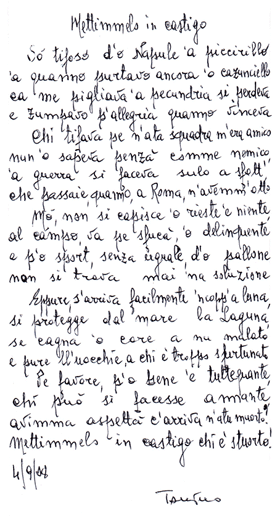 Mettimmelo in castigo
Sò tifoso d'o Napule 'a piccirillo
'a quanno purtavo ancora 'o cazunciello
ca me pigliava 'a pecundria si perdeva
e zumpavo p'allegria quanno vinceva
Chi tifava pe n'ata squadra m'era amico
nun 'o sapeva penzà comme nemico
'a guerra si faceva sulo a sfott'
che passaie quanno, a Roma, n'avemm' otto
Mò, non si capisce 'o rieste 'e niente
al campo, va pe sfucà 'o delinquente
e p'o sport, senza uguale, d'o pallone
non si trova mai 'na soluzione
Eppure, s'arriva facilmente 'ncopp'a luna,
si protegge dal mare la Laguna,
se cagna 'o core a nu malato
e pure ll'uocchie, a chi è troppo sfurtunato
Pe favore, p'o bene 'e tuttequante
chi può si facesse amante
avimma aspettà c'arriva n'atu muorto?
Mettimmelo in castigo chi è stuorto!
4/9/